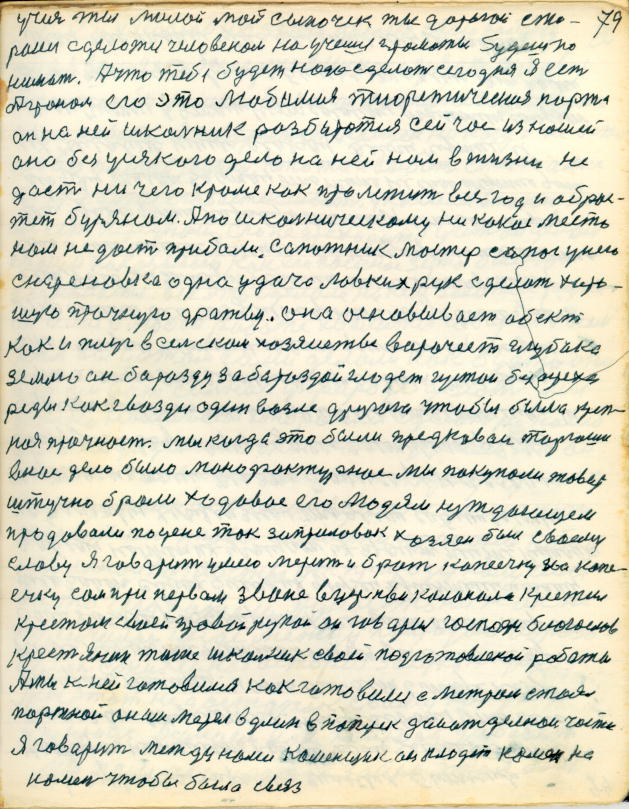 79
учил ты милой мой сыночек ты дорогой ста-
раися сделоти человеком на учеши громоты будеш по
нимат. А что тебе будет надо сделат сегодня я ест
Агроном его это Любимия тиоретическая парта
он на ней школник розбироtся сейчас из нашей
она без уиякого дело на ней нам в жизни не
даст ни чего кроме как пролетит вес год и обрас-
тет буряном. А по школническому ни какое месть
нам не даст прибали. Сапожник мастер сапог у него
одна удача ловких рук сделат харо-
шую прочную дратву. она основывает обект
как и плуг в селском хозяистве ворочеет глубако
землю он барозду за бароздой гладет густои
реды как гвозди один возле другога чтобы былла креп-
ноя прочност. мы когда это были предковаи торгоши
вное дело было монофоктурное мы покуполи товар
штучно броли ходовое его Людям нуждающем
продовали поцене ток хозяен был своему
слову Я говорит умею мерит и брат копеечку за капе-
ечку сам при первам звоне вцеркви колакола крестил
крестом своей провой рукой он говарил господи благослов
крестянин тоже школник своей подготовленой роботы
Аты к ней готовился как готовили с метром стоял
портной он им мерел вдлин в попирек части
Я говорит между нами каменщик он кладет камен на
камен чтобы была связ